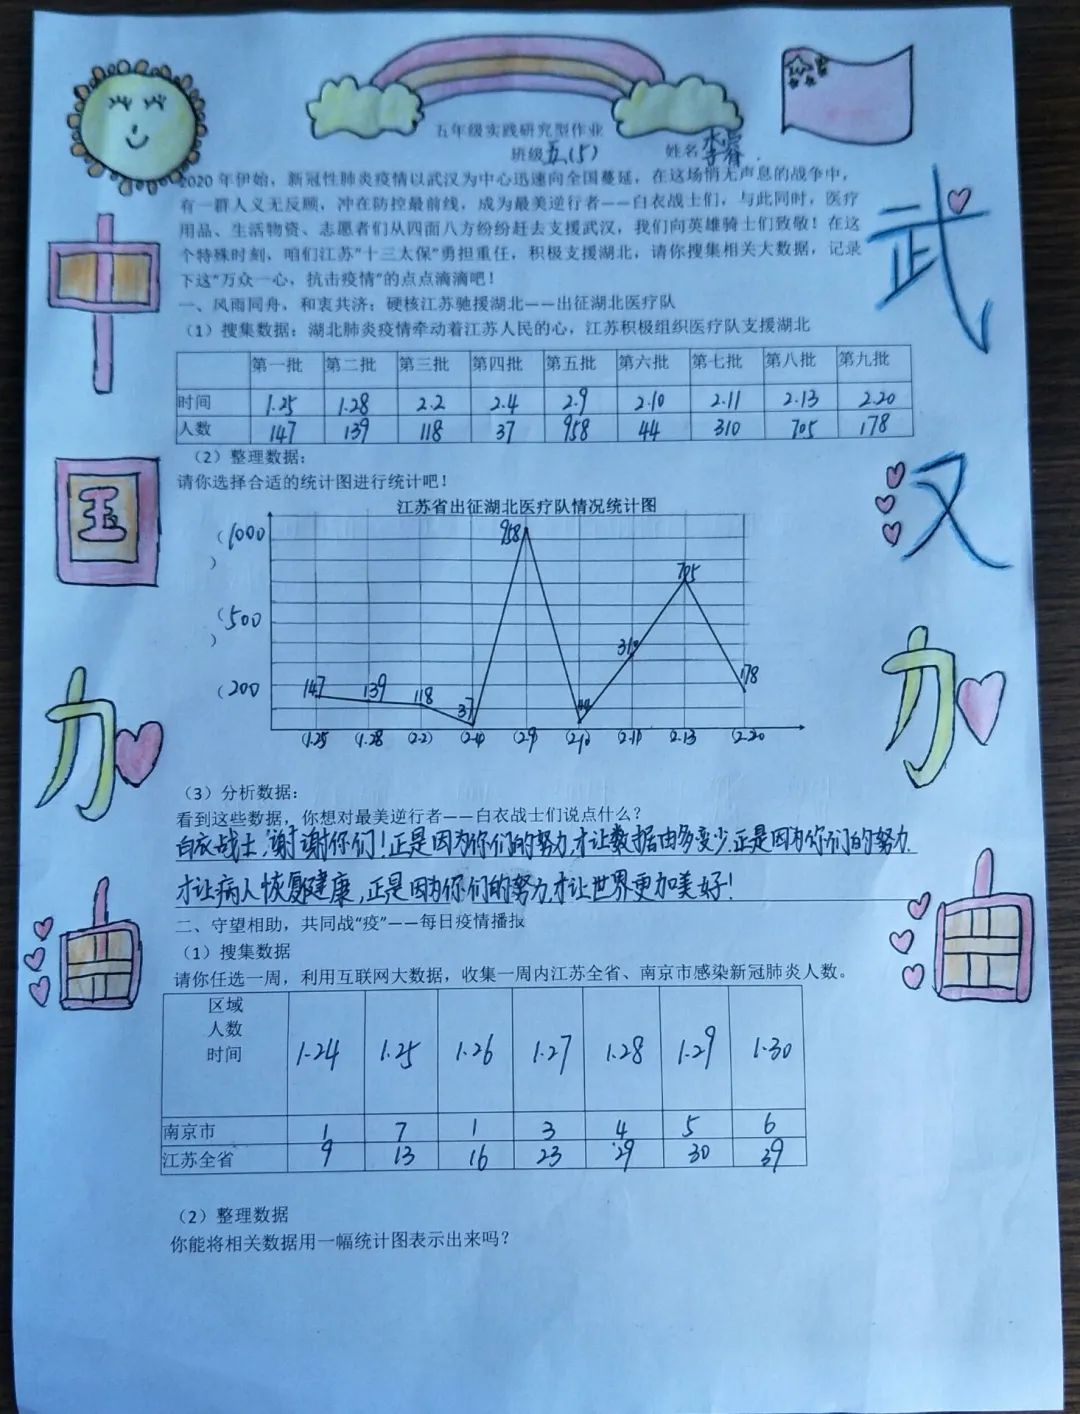 五年级实践研究型作业
班级 五(5) 姓名
2020年伊始，新冠性肺炎疫情以武汉为中心迅速向全国蔓延，在这场悄无声息的战争中，
有一群人义无反顾，冲在防控最前线，成为最美逆行者——白衣战士们，与此同时，医疗
用品、生活物资、志愿者们从四面八方纷纷赶去支援武汉，我们向英雄骑士们致敬！在这
个特殊时刻，咱们江苏“十三太保”勇担重任，积极支援湖北，请你搜集相关大数据，记录
下这“万众一心，抗击疫情”的点点滴滴吧！
一、风雨同舟，和衷共济：硬核江苏驰援湖北——出征湖北医疗队
（1）搜集数据：湖北肺炎疫情牵动着江苏人民的心，江苏积极组织医疗队支援湖北
第一批 第二批 第三批 第四批 第五批 第六批 第七批 第八批 第九批
时间 1.25 1.28 2.2 2.4 2.9 2.10 2.11 2.13 2.20
人数 147 139 118 37 958 44 310 705 178
（2）整理数据：
请你选择合适的统计图进行统计吧！
江苏省出征湖北医疗队情况统计图
（1000
）
（500
）
（200
147 139 118 37 958 44 310 705 178
(1.25 (1.28 (2.2) (2.4) (2.9 (2.10 (2.11 (2.13 (2.20
（3）分析数据：
看到这些数据，你想对最美逆行者——白衣战士们说点什么？
白衣战士，谢谢你们！正是因为你们的努力，才让数据由多变少，正是因为你们的努力，
才让病人恢复健康，正是因为你们的努力，才让世界更加美好！
二、守望相助，共同战“疫”——每日疫情播报
（1）搜集数据
请你任选一周，利用互联网大数据，收集一周内江苏全省、南京市感染新冠肺炎人数。
区域
人数
时间 1.24 1.25 1.26 1.27 1.28 1.29 1.30
南京市 1 7 1 3 4 5 6
江苏全省 9 13 16 23 29 30 39
（2）整理数据
你能将相关数据用一幅统计图表示出来吗？
中国加油
武汉加油